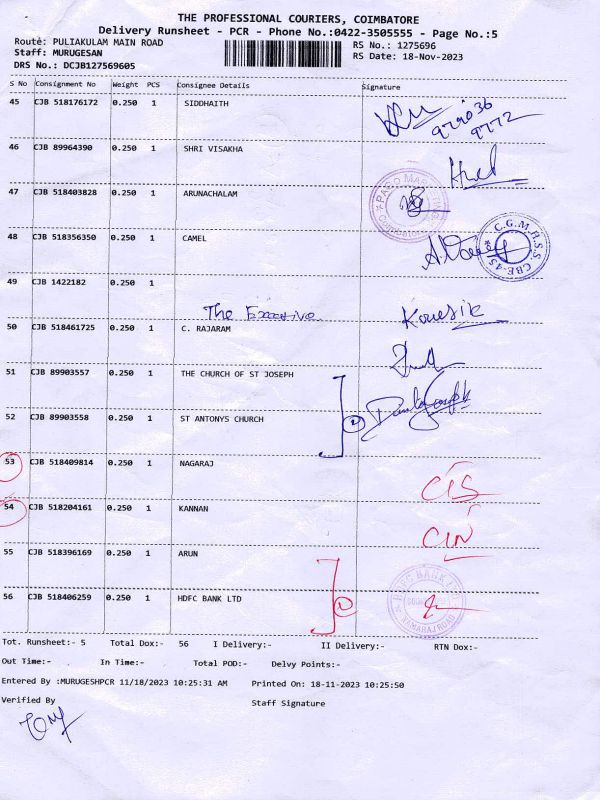 THE PROFESSIONAL COURIERS, COIMBATORE
Delivery Runsheet - PCR - Phone No.:0422-3505555 - Page No.:5
Route: PULIAKULAM MAIN ROAD RS No.: 1275696
Staff: MURUGESAN RS Date: 18-Nov-2023
DRS No.: DCJB127569605
S No Consignment No Weight PCS Consignee Details Signature
45 CJB 518176172 0.250 1 SIDDHAITH
979036
9772
46 CJB 89964390 0.250 1 SHRI VISAKHA
47 CJB 518403828 0.250 1 ARUNACHALAM
48 CJB 518356350 0.250 1 CAMEL
C.G.M.H.S.S. CBE-45
49 CJB 1422182 0.250 1
The Executive Kousik
50 CJB 518461725 0.250 1 C. RAJARAM
51 CJB 89903557 0.250 1 THE CHURCH OF ST JOSEPH
2
52 CJB 89903558 0.250 1 ST ANTONYS CHURCH
53 CJB 518409814 0.250 1 NAGARAJ CIS
54 CJB 518204161 0.250 1 KANNAN CIN
55 CJB 518396169 0.250 1 ARUN
HDFC BANK LTD
56 CJB 518406259 0.250 1 HDFC BANK LTD
KAMARAJ ROAD
Tot. Runsheet:- 5 Total Dox:- 56 I Delivery:- II Delivery:- RTN Dox:-
Out Time:- In Time:- Total POD:- Delvy Points:-
Entered By :MURUGESHPCR 11/18/2023 10:25:31 AM Printed On: 18-11-2023 10:25:50
Verified By Staff Signature